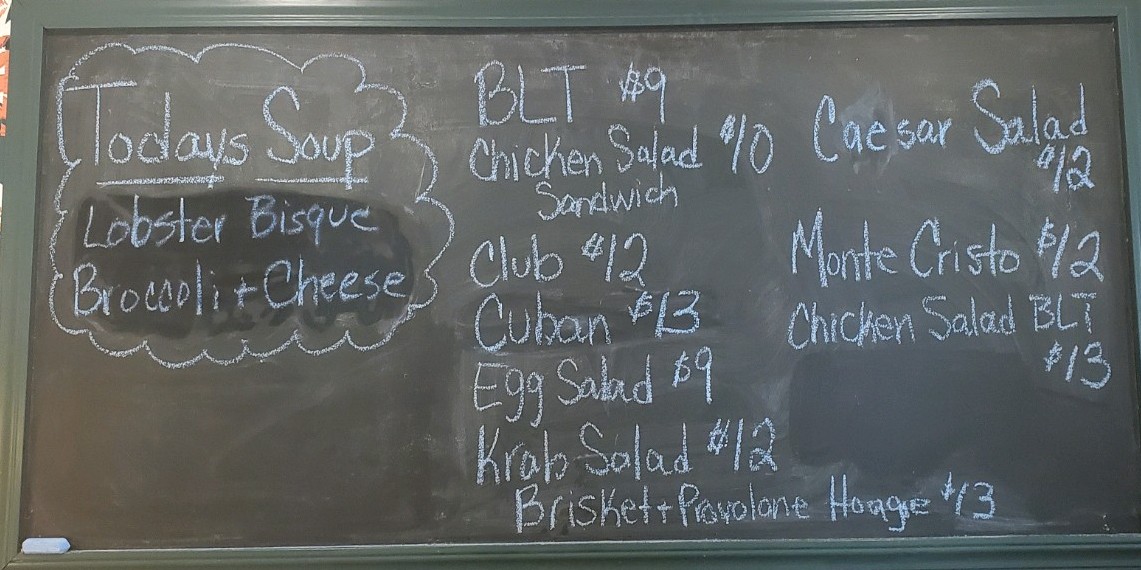 Todays Soup
Lobster Bisque
Broccoli + Cheese
BLT $9
Chicken Salad $10
Sandwich
Club $12
Cuban $13
Egg Salad $9
Krab Salad $12
Brisket + Provolone Hoagie $13
Caesar Salad
$12
Monte Cristo $12
Chicken Salad BLT
$13